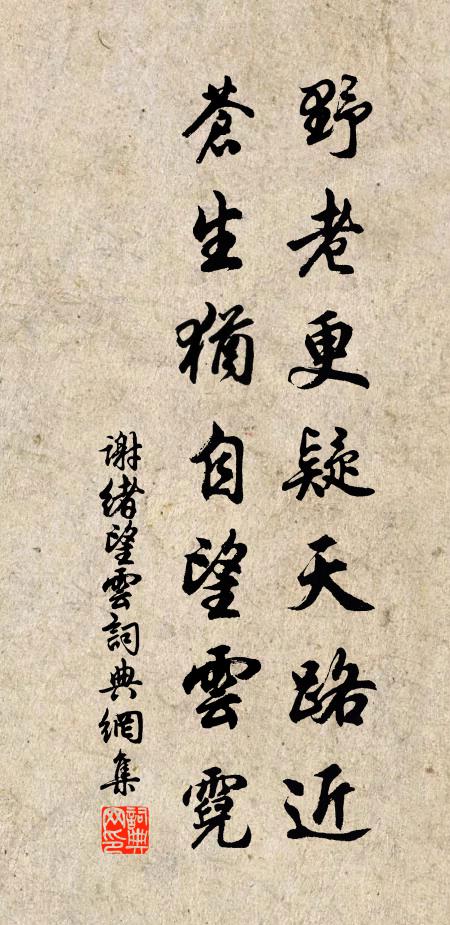 野老更疑天路近
蒼生猶自望雲霓
謝緒望雲詞典網集
詞典網印